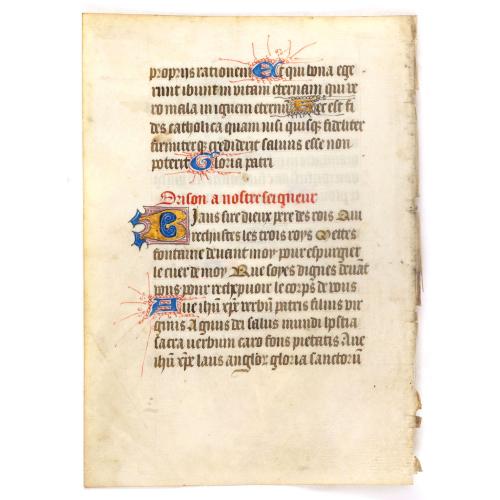 proprijs rationem Et qui bona ege
runt ibunt in vitam eternam qui ve
ro mala in ignem eternū Hec est fi
des catholica quam nisi quisq; fideliter
firmiterq; crediderit saluus esse non
poterit Gloria patri
Orison a nostre seigneur
Biaus sire dieux pere des rois Qui
rechustes les trois roys Mettes
fontaine deuant moy pour espurgier
le cuer de moy Que soyes dignes deuāt
vous pour rechepuoir le corps de vous
Aue ihū xp̄e verbū patris filius vir
ginis Agnus dei salus mundi hostia
sacra verbum caro fons pietatis Aue
ihū xp̄e laus anglor̄ gloria sanctorū